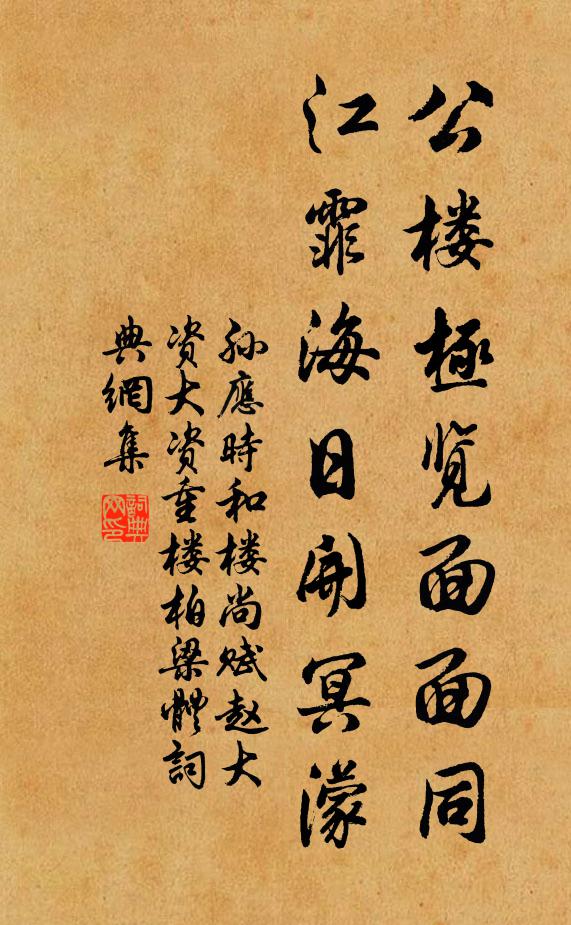 公楼極览面面同
江霏海日開冥濛
孙應時和楼尚赋赵大
资大资重楼柏梁體詞
典網集
詞典网印